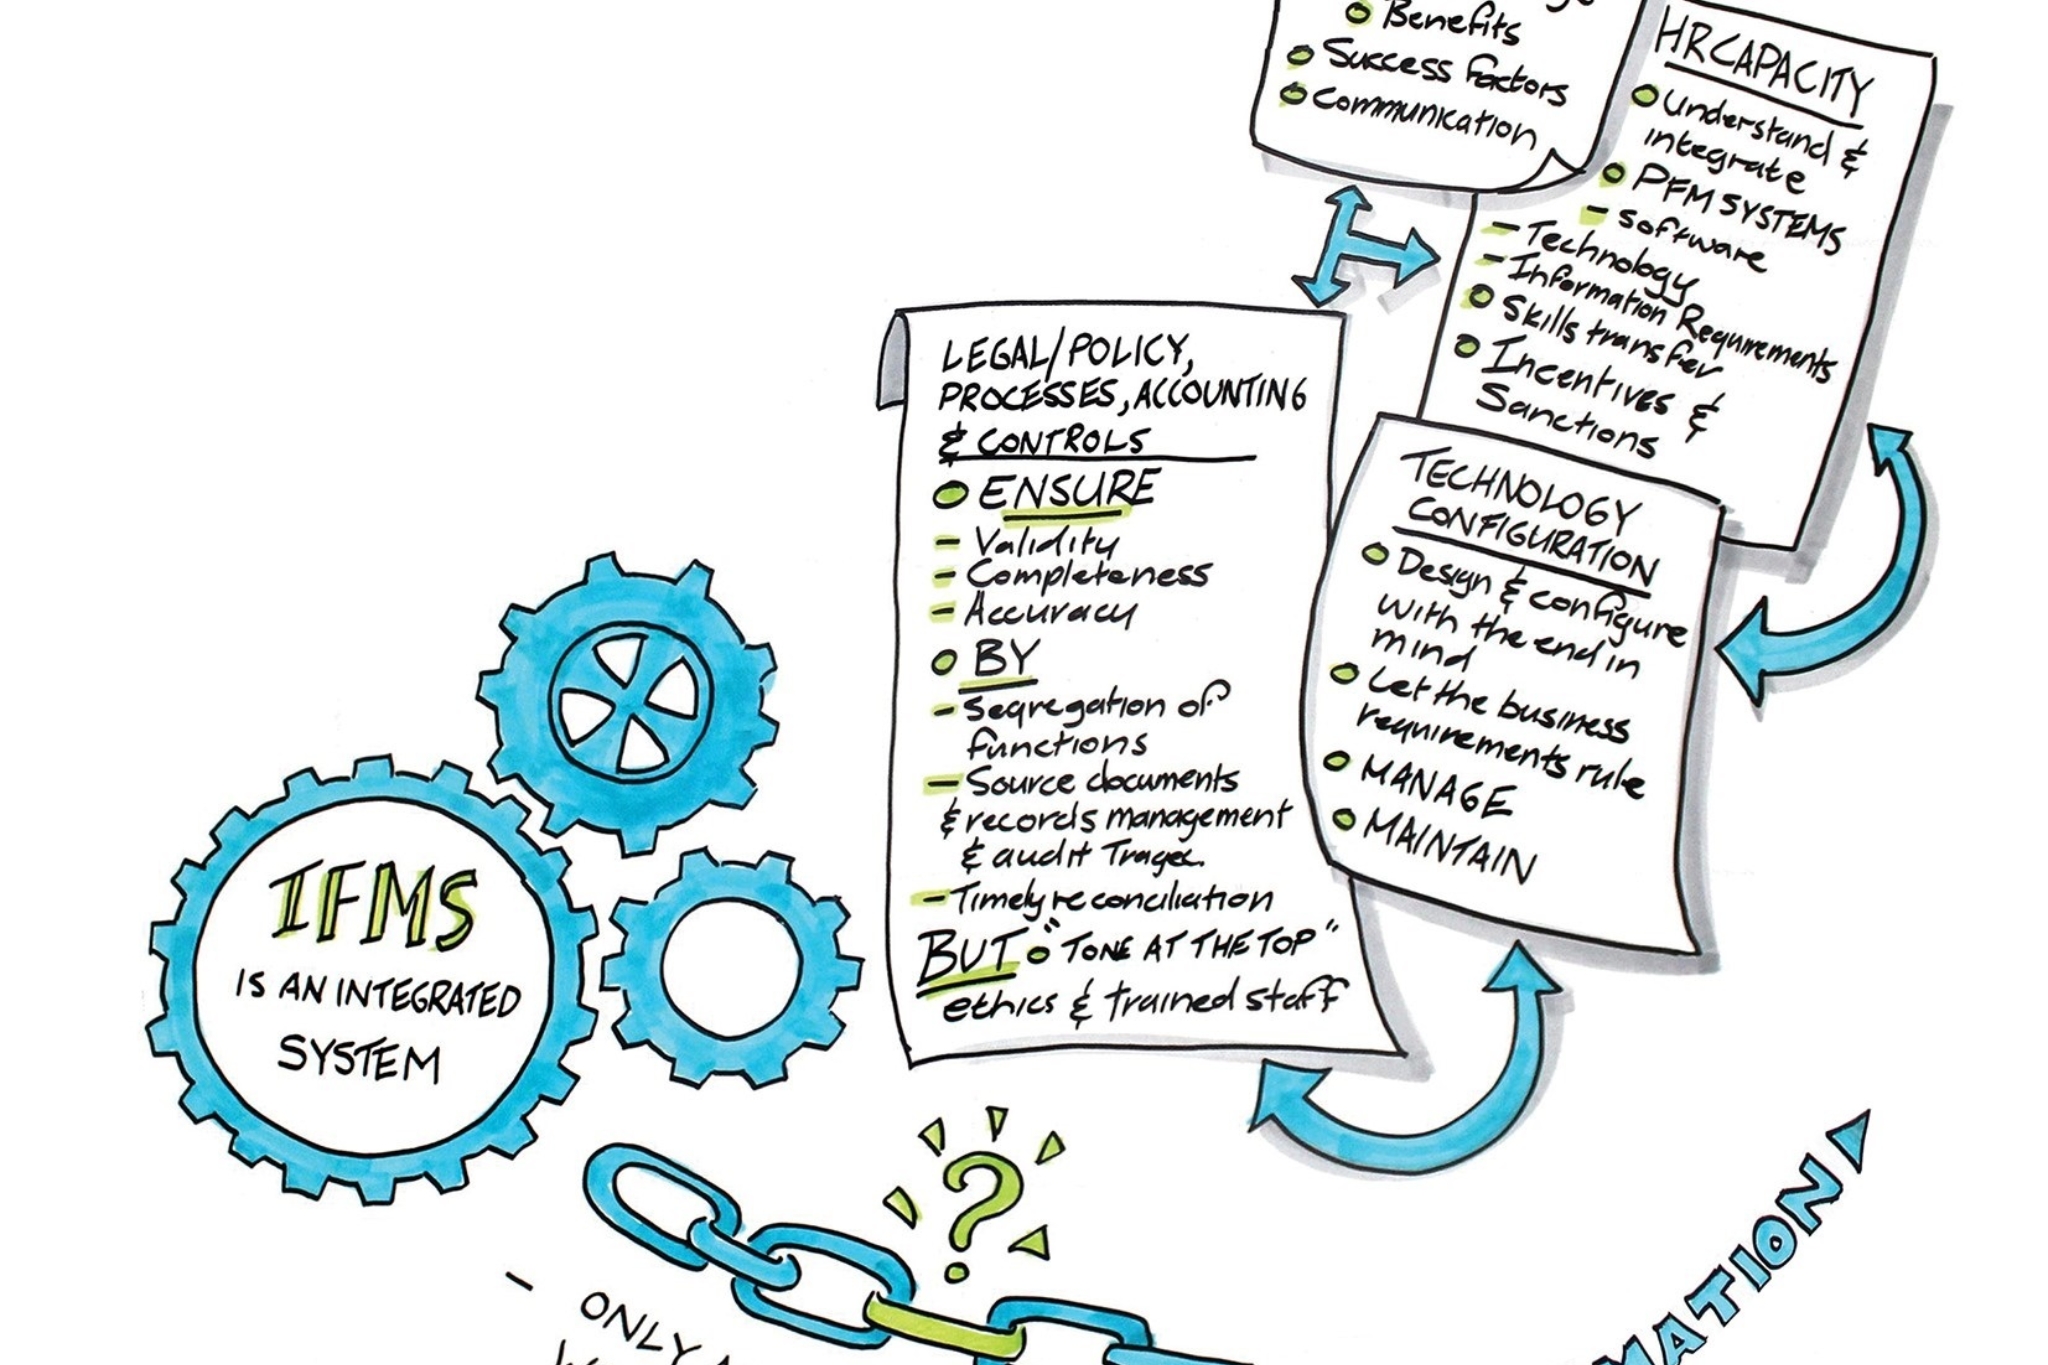 Benefits
Success factors
Communication
HR CAPACITY
Understand &
integrate
PFM SYSTEMS
- software
- Technology
- Information Requirements
Skills transfer
Incentives &
Sanctions
LEGAL/POLICY,
PROCESSES, ACCOUNTING
& CONTROLS
ENSURE
- Validity
- Completeness
- Accuracy
BY
- Segregation of
functions
- Source documents
& records management
& audit
- Timely reconciliation
BUT "TONE AT THE TOP"
ethics & trained staff
TECHNOLOGY
CONFIGURATION
Design & configure
with the end in
mind
Let the business
requirements rule
MANAGE
MAINTAIN
IFMS
IS AN INTEGRATED
SYSTEM
?
- ONLY
MATION